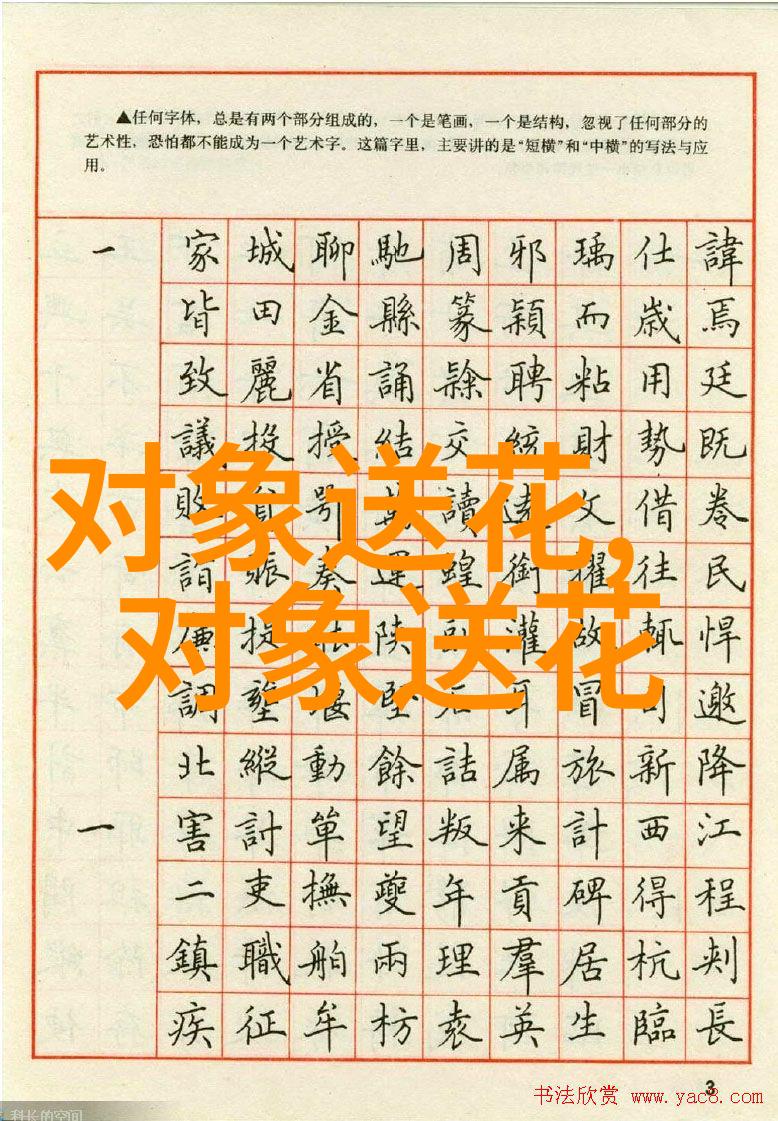 ▲任何字体，总是有两个部分组成的，一个是笔画，一个是结构，忽视了任何部分的
艺术性，恐怕都不能成为一个艺术字。这篇字里，主要讲的是“短横”和“中横”的写法与应
用。
一 家城聊馳周邪瑀仕諱
皆田金縣篆穎而歲焉
致麗省誦隸聘粘用廷
議投授結交統財勢既
对象送花，
敗 鄂 讀遠文借卷
詣賑奏運蝗銜擢往民
对象送花
價 陝 灌故輒悍
調 堰堅石耳冒司邀
北縱動餘詰属旅新降
一 害討單望叛来計西江
二吏撫夔年貢碑得程
鎮職舶兩理羣居杭刺
疾征牟枋袁英生臨長
3
书法欣赏 www.yac8.com
科长的空间